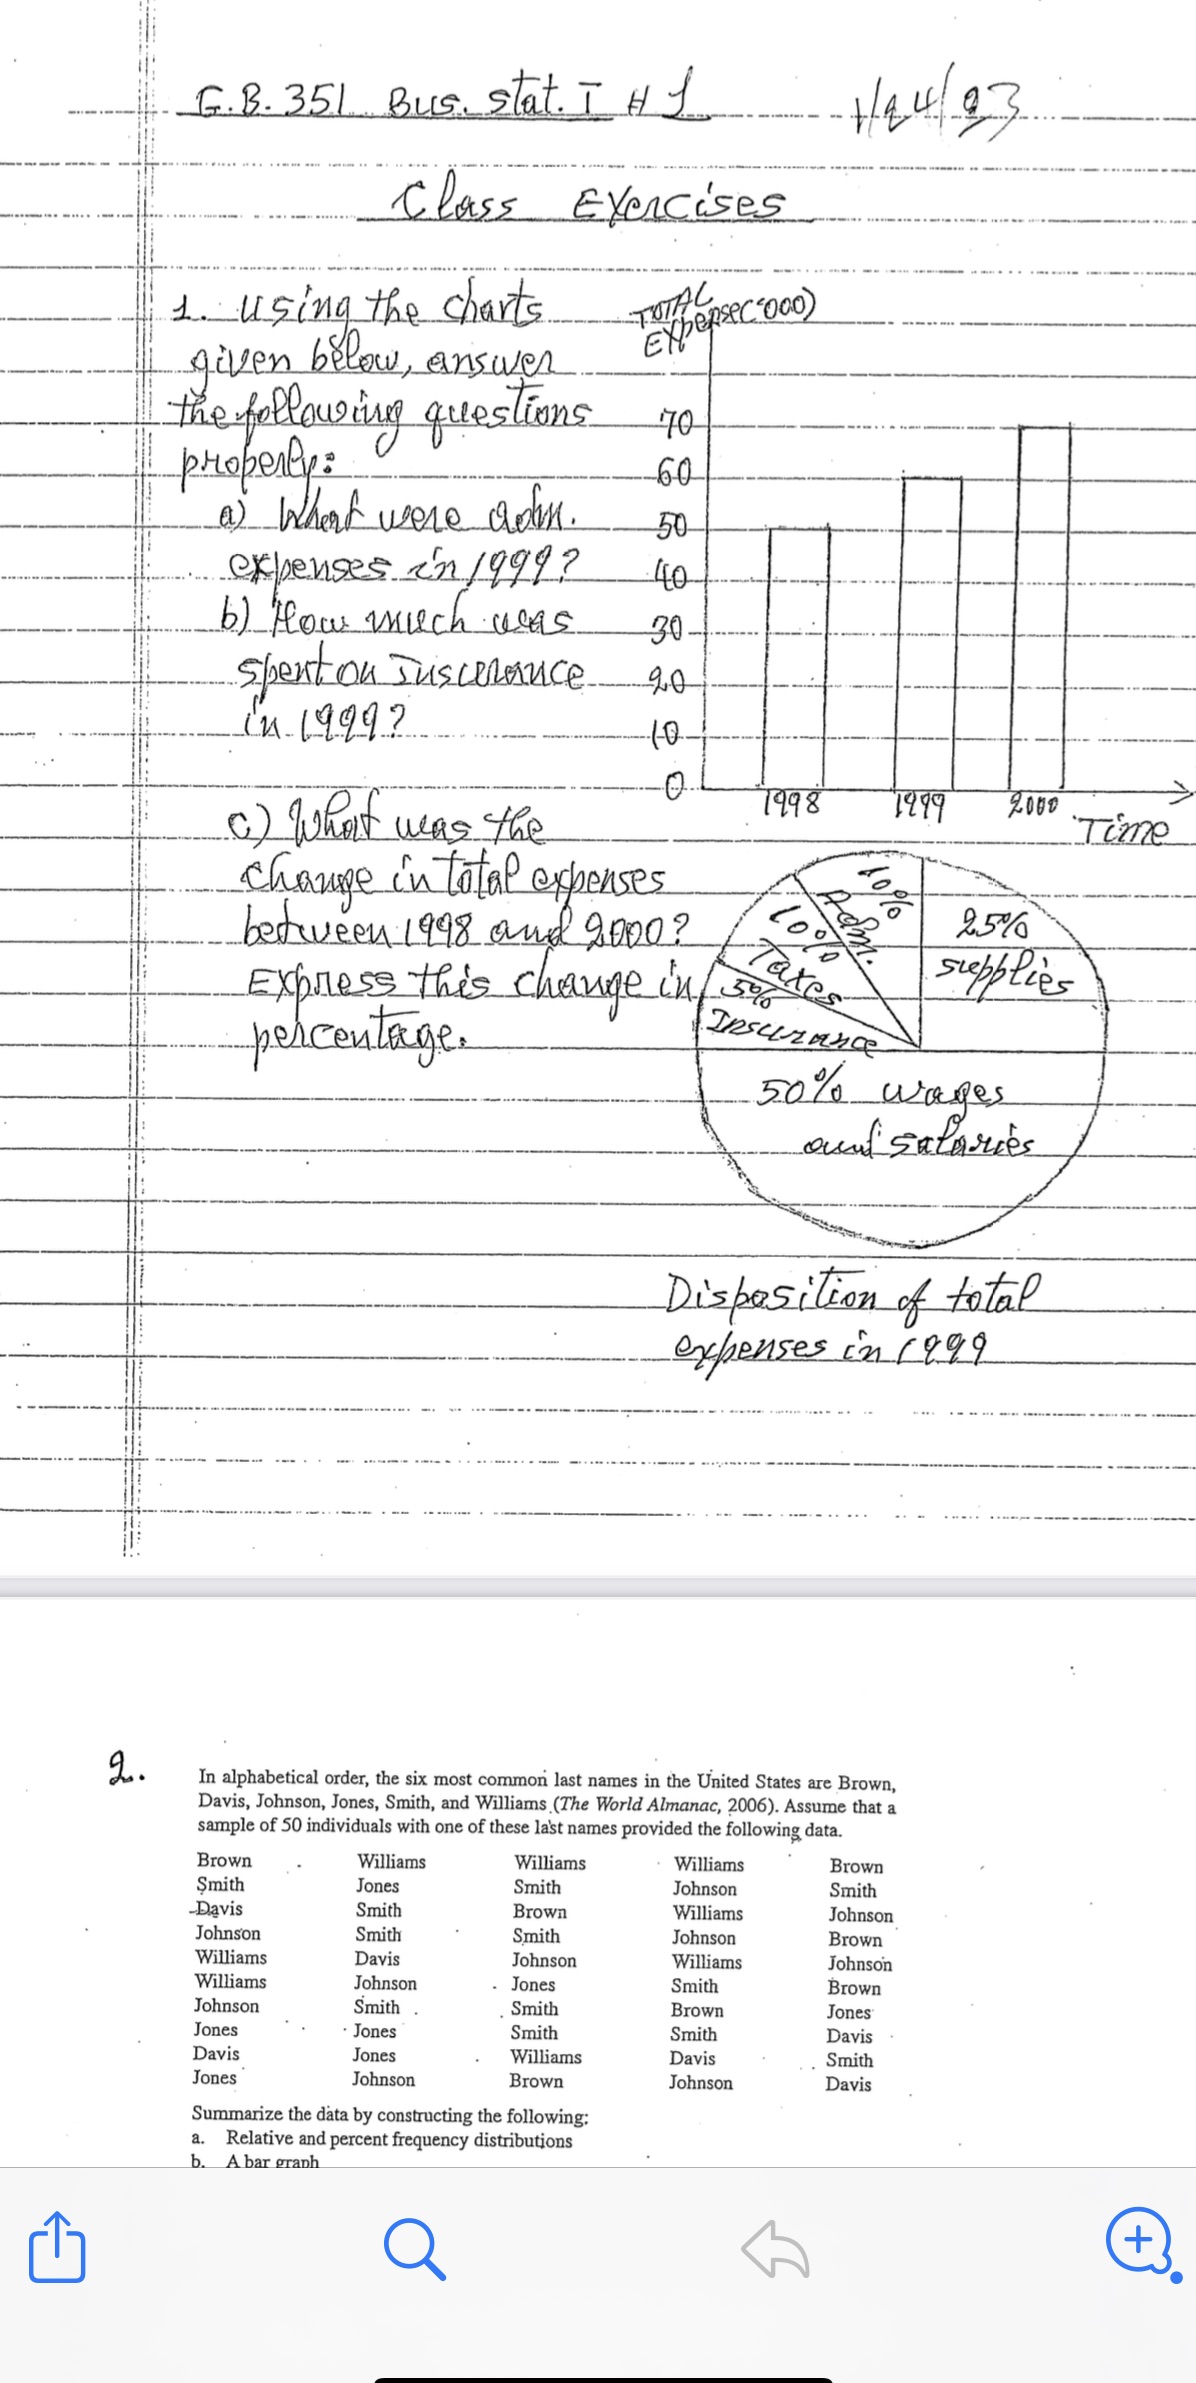 G.B. 351 Bus. Stat. I # 1 1/24/23
Class Exercises
1. Using the charts
given below, answer
the following questions
properly:
a) What were adm.
expenses in 1999?
b) How much was
spent on Insurance
in 1999?
c) What was the
change in total expenses
between 1998 and 2000?
Express this change in
percentage.
TOTAL
Expense('000)
70
60
50
40
30
20
10
0
1998 1999 2000
Time
10%
Adm.
10%
Taxes
5%
Insurance
25%
supplies
50% wages
and salaries
Disposition of total
expenses in 1999
2.
In alphabetical order, the six most common last names in the United States are Brown,
Davis, Johnson, Jones, Smith, and Williams (The World Almanac, 2006). Assume that a
sample of 50 individuals with one of these last names provided the following data.
Brown Williams Williams Williams Brown
Smith Jones Smith Johnson Smith
Davis Smith Brown Williams Johnson
Johnson Smith Smith Johnson Brown
Williams Davis Johnson Williams Johnson
Williams Johnson Jones Smith Brown
Johnson Smith Smith Brown Jones
Jones Jones Smith Smith Davis
Davis Jones Williams Davis Smith
Jones Johnson Brown Johnson Davis
Summarize the data by constructing the following:
a. Relative and percent frequency distributions
b. A bar graph